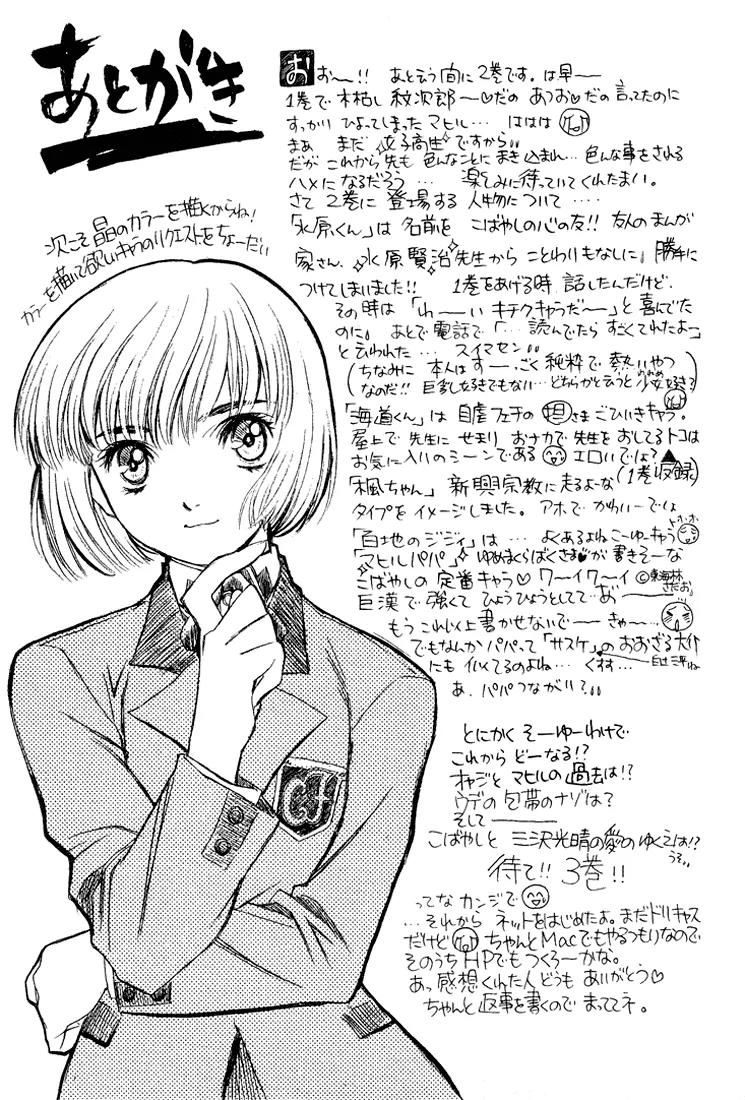 あとがき
おお〜!! あと云う間に2巻です。は早ー
1巻で木枯し紋次郎〜♡だの あつお♡だの言ってたのに
すっかり ひよってしまった マヒル… ははは
まあ まだ 女子高生 ですから
だが これから先も 色んなことに まき込まれ… 色んな事をされる
ハメになるだろう … 楽しみに待っていてくれたまい。
さて 2巻に 登場する 人物について ‥‥
「水原くん」は 名前を こばやしの心の友!! 友人のまんが
家さん、水原賢治先生から ことわりもなしに 勝手に
つけてしまいました!! 1巻をあげる時 話したんだけど、
その時は「わーい キチクキャラだー」と 喜んでた
のに。 あとで電話で「… 読んでたら すごくてれたよー」
と云われた … スイマセン
(ちなみに 本人は すー、ごく 純粋で 熱いやつ
なのだ!! 巨乳好きでもない… どちらかと云うと 少女好き?)
「海道くん」は 自虐フェチの 担さま ごひいきキャラ。
屋上で 先生に せまり おナカで 先生を おしてるトコは
お気に入りのシーンである エロいでしょ?
(1巻収録)
「楓ちゃん」 新興宗教に走るよーな
タイプを イメージしました。 アホで かわいーでしょ
「白地のジジイ」は … よくあるよね こーゆーキャラ
トホホ
「マヒルパパ」 ゆめまくらばくさま♥が 書きそーな
こばやしの 定番キャラ♡ ワ〜イワ〜イ ©東海林さだお
巨漢で 強くて ひょうひょうとしてて おー
もう これ以上 書かせないでー きゃー、
でもなんか パパって「サスケ」の おおざる大介
にも イメてるのよね… くすす…
あ、パパつながり?
とにかく そーゆーわけで
これから どーなる!?
オヤジと マヒルの 過去は!?
ウデの 包帯のナゾは?
そして ー
こばやしと 三沢光晴の愛の ゆくえは!?
うそ
待て!! 3巻!!
ってな カンジで
… それから ネットをはじめたよ。まだドリキャス
だけど ちゃんとMacでもやるつもりなので
そのうちHPでもつくろーかな。
あっ 感想くれた人 どうも ありがとう♡
ちゃんと 返事を書くので まっててネ。
次こそ 晶のカラーを描くからね!
カラーを描いて欲しいキャラのリクエストをちょーだい